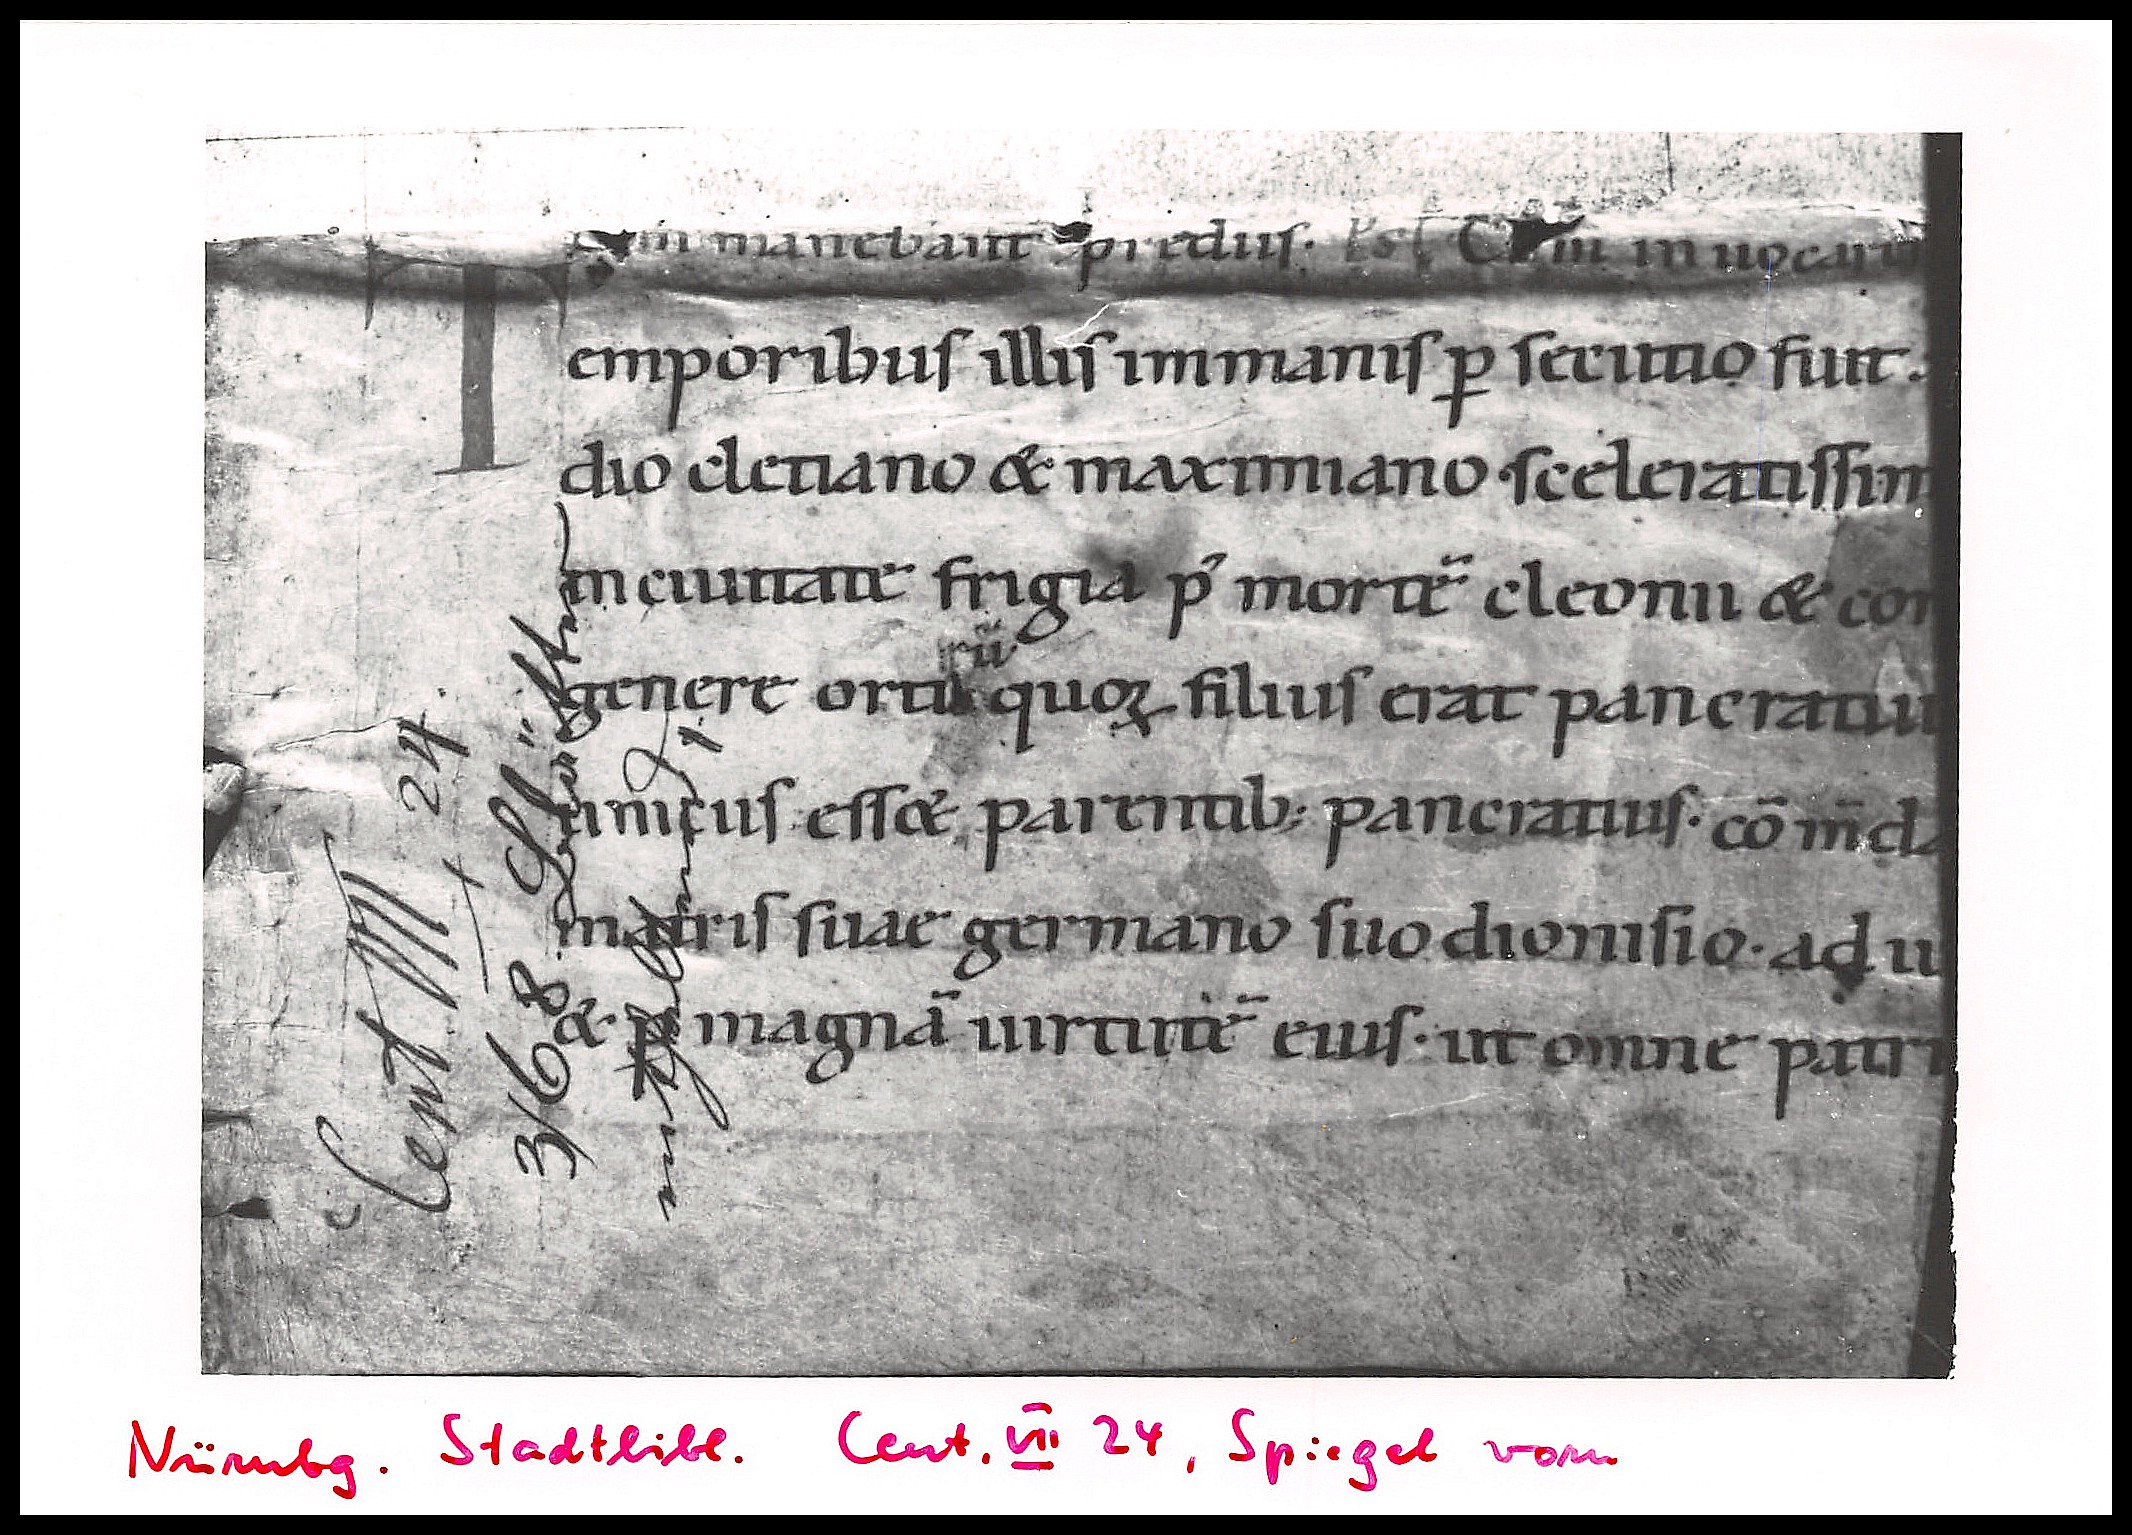 manebant predius. Ps Cum inuocar
Temporibus illis immanis ꝑ secutio fuit.
dio cletiano & maximiano sceleratissim
in ciuitate frigia p᷒ morte᷉ cleonii & cor
rū
genere ortus quoꝝ filius erat pancratiu
unicus essæ parentib; pancratius. cō m̄da
matris suae germano suo dionisio. ad u
& magnā uirtute᷉ eius. ut omne patri
Cent VII 24.
3/68
Nürnbg. Stadtbibl. Cent. VII 24, Spiegel vorn